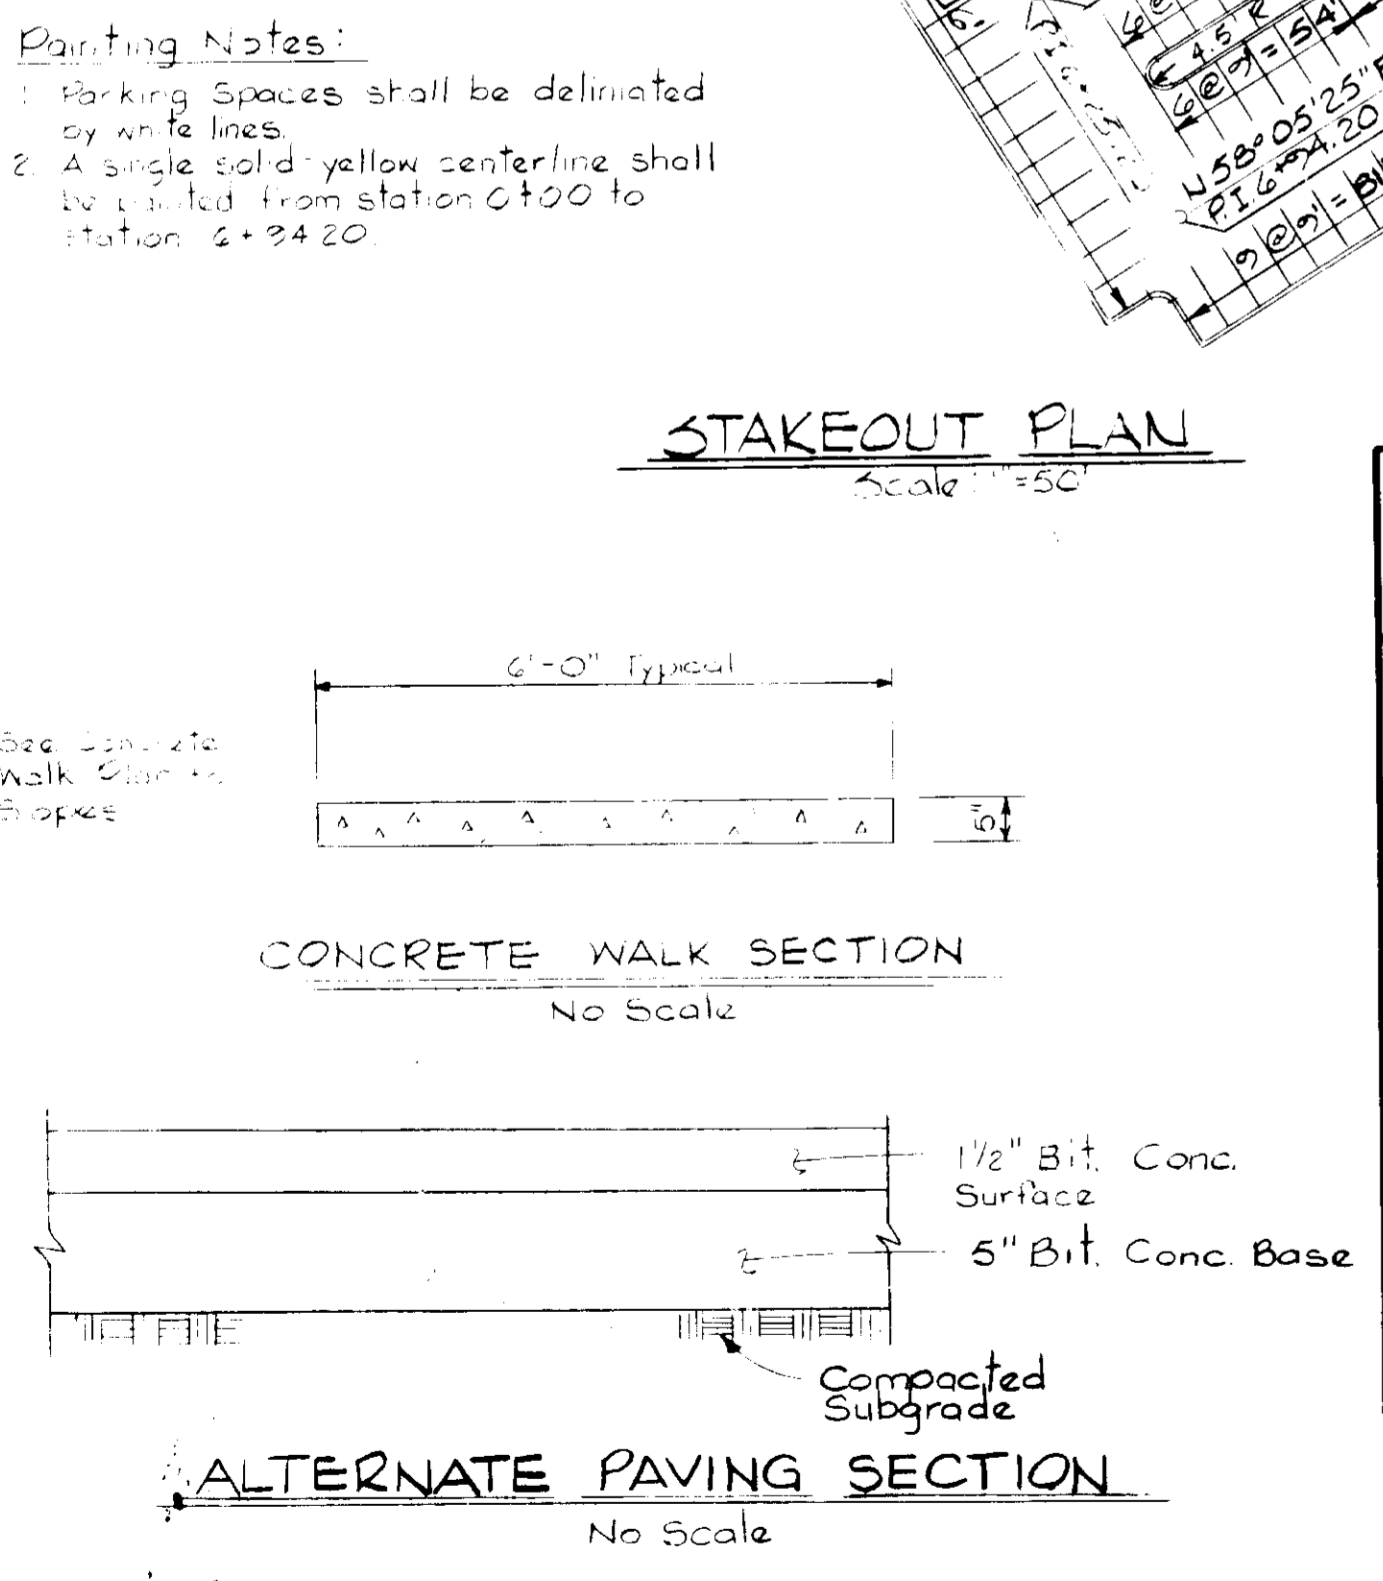 Painting Notes:
1. Parking Spaces shall be deliniated
by white lines.
2. A single solid yellow centerline shall
be painted from station 0+00 to
station 6+94.20.
6@
4.5' R
6@9'=54'
N58°05'25"E
P.I. 6+94.20
9@9'=81'
STAKEOUT PLAN
Scale: 1"=50'
6'-0" Typical
See Concrete
Walk Plan
Slopes
5"
CONCRETE WALK SECTION
No Scale
1½" Bit. Conc.
Surface
5" Bit. Conc. Base
Compacted
Subgrade
ALTERNATE PAVING SECTION
No Scale